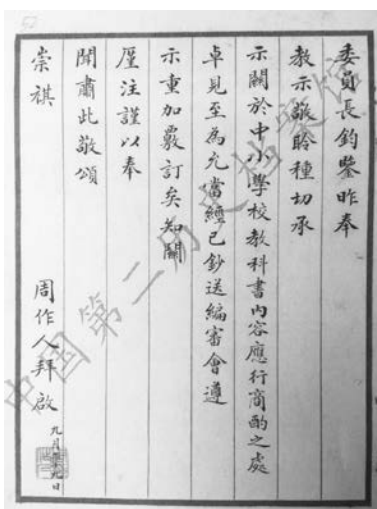 委員長鈞鑒昨奉
教示敬聆種切承
示關於中小學校教科書內容應行商酌之處
卓見至為允當經已鈔送編審會遵
示重加覈訂矣知關
廑注謹以奉
聞肅此敬頌
崇祺
周作人拜啟
九月 日
中国第二历史档案馆